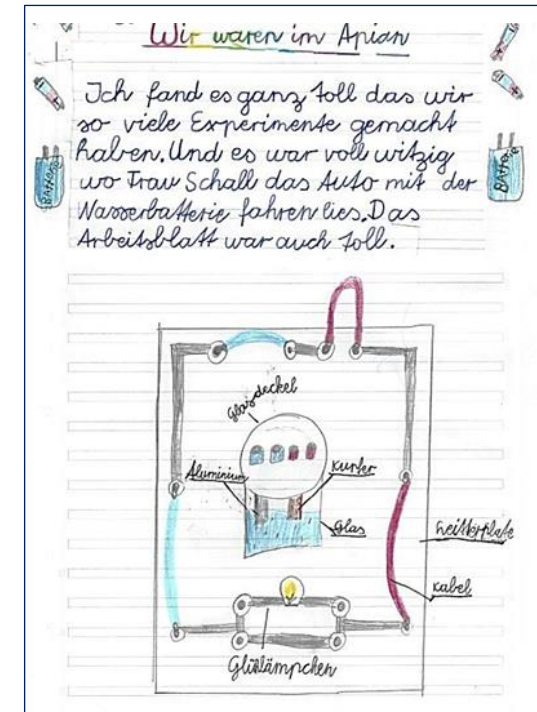 Wir waren im Apian
Ich fand es ganz toll das wir
so viele Experimente gemacht
haben. Und es war voll witzig
wo Frau Schall das Auto mit der
Wasserbatterie fahren lies. Das
Arbeitsblatt war auch toll.
Glasdeckel
Aluminium
Kupfer
Glas
Leitterplate
Kabel
Glülämpchen